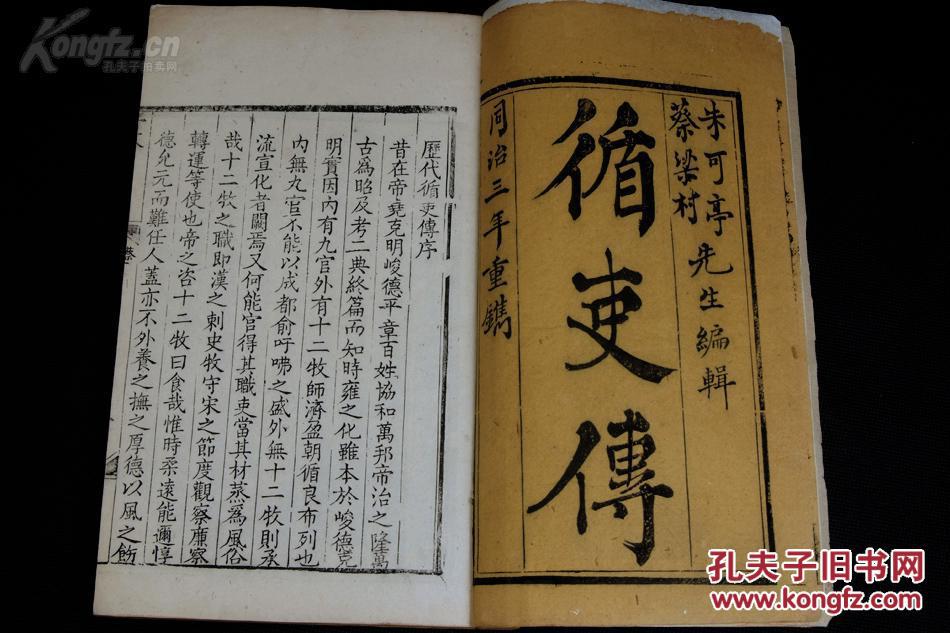 朱可亭
蔡梁村
先生編輯
循吏傳
同治三年重鐫
歷代循吏傳序
昔在帝堯克明峻德平章百姓協和萬邦帝治之隆萬
古爲昭及考二典終篇而知時雍之化雖本於峻德克
明實因內有九官外有十二牧師濟盈朝循良布列也
內無九官不能以成都俞吁咈之盛外無十二牧則承
流宣化者闕焉又何能官得其職吏當其材蒸爲風俗
哉十二牧之職即漢之刺史牧守宋之節度觀察亷察
轉運等使也帝之咨十二牧曰食哉惟時柔遠能邇惇
德允元而難任人蓋亦不外養之撫之厚德以風之飭
Kongfz.cn
孔夫子拍卖网
孔夫子旧书网
www.kongfz.com